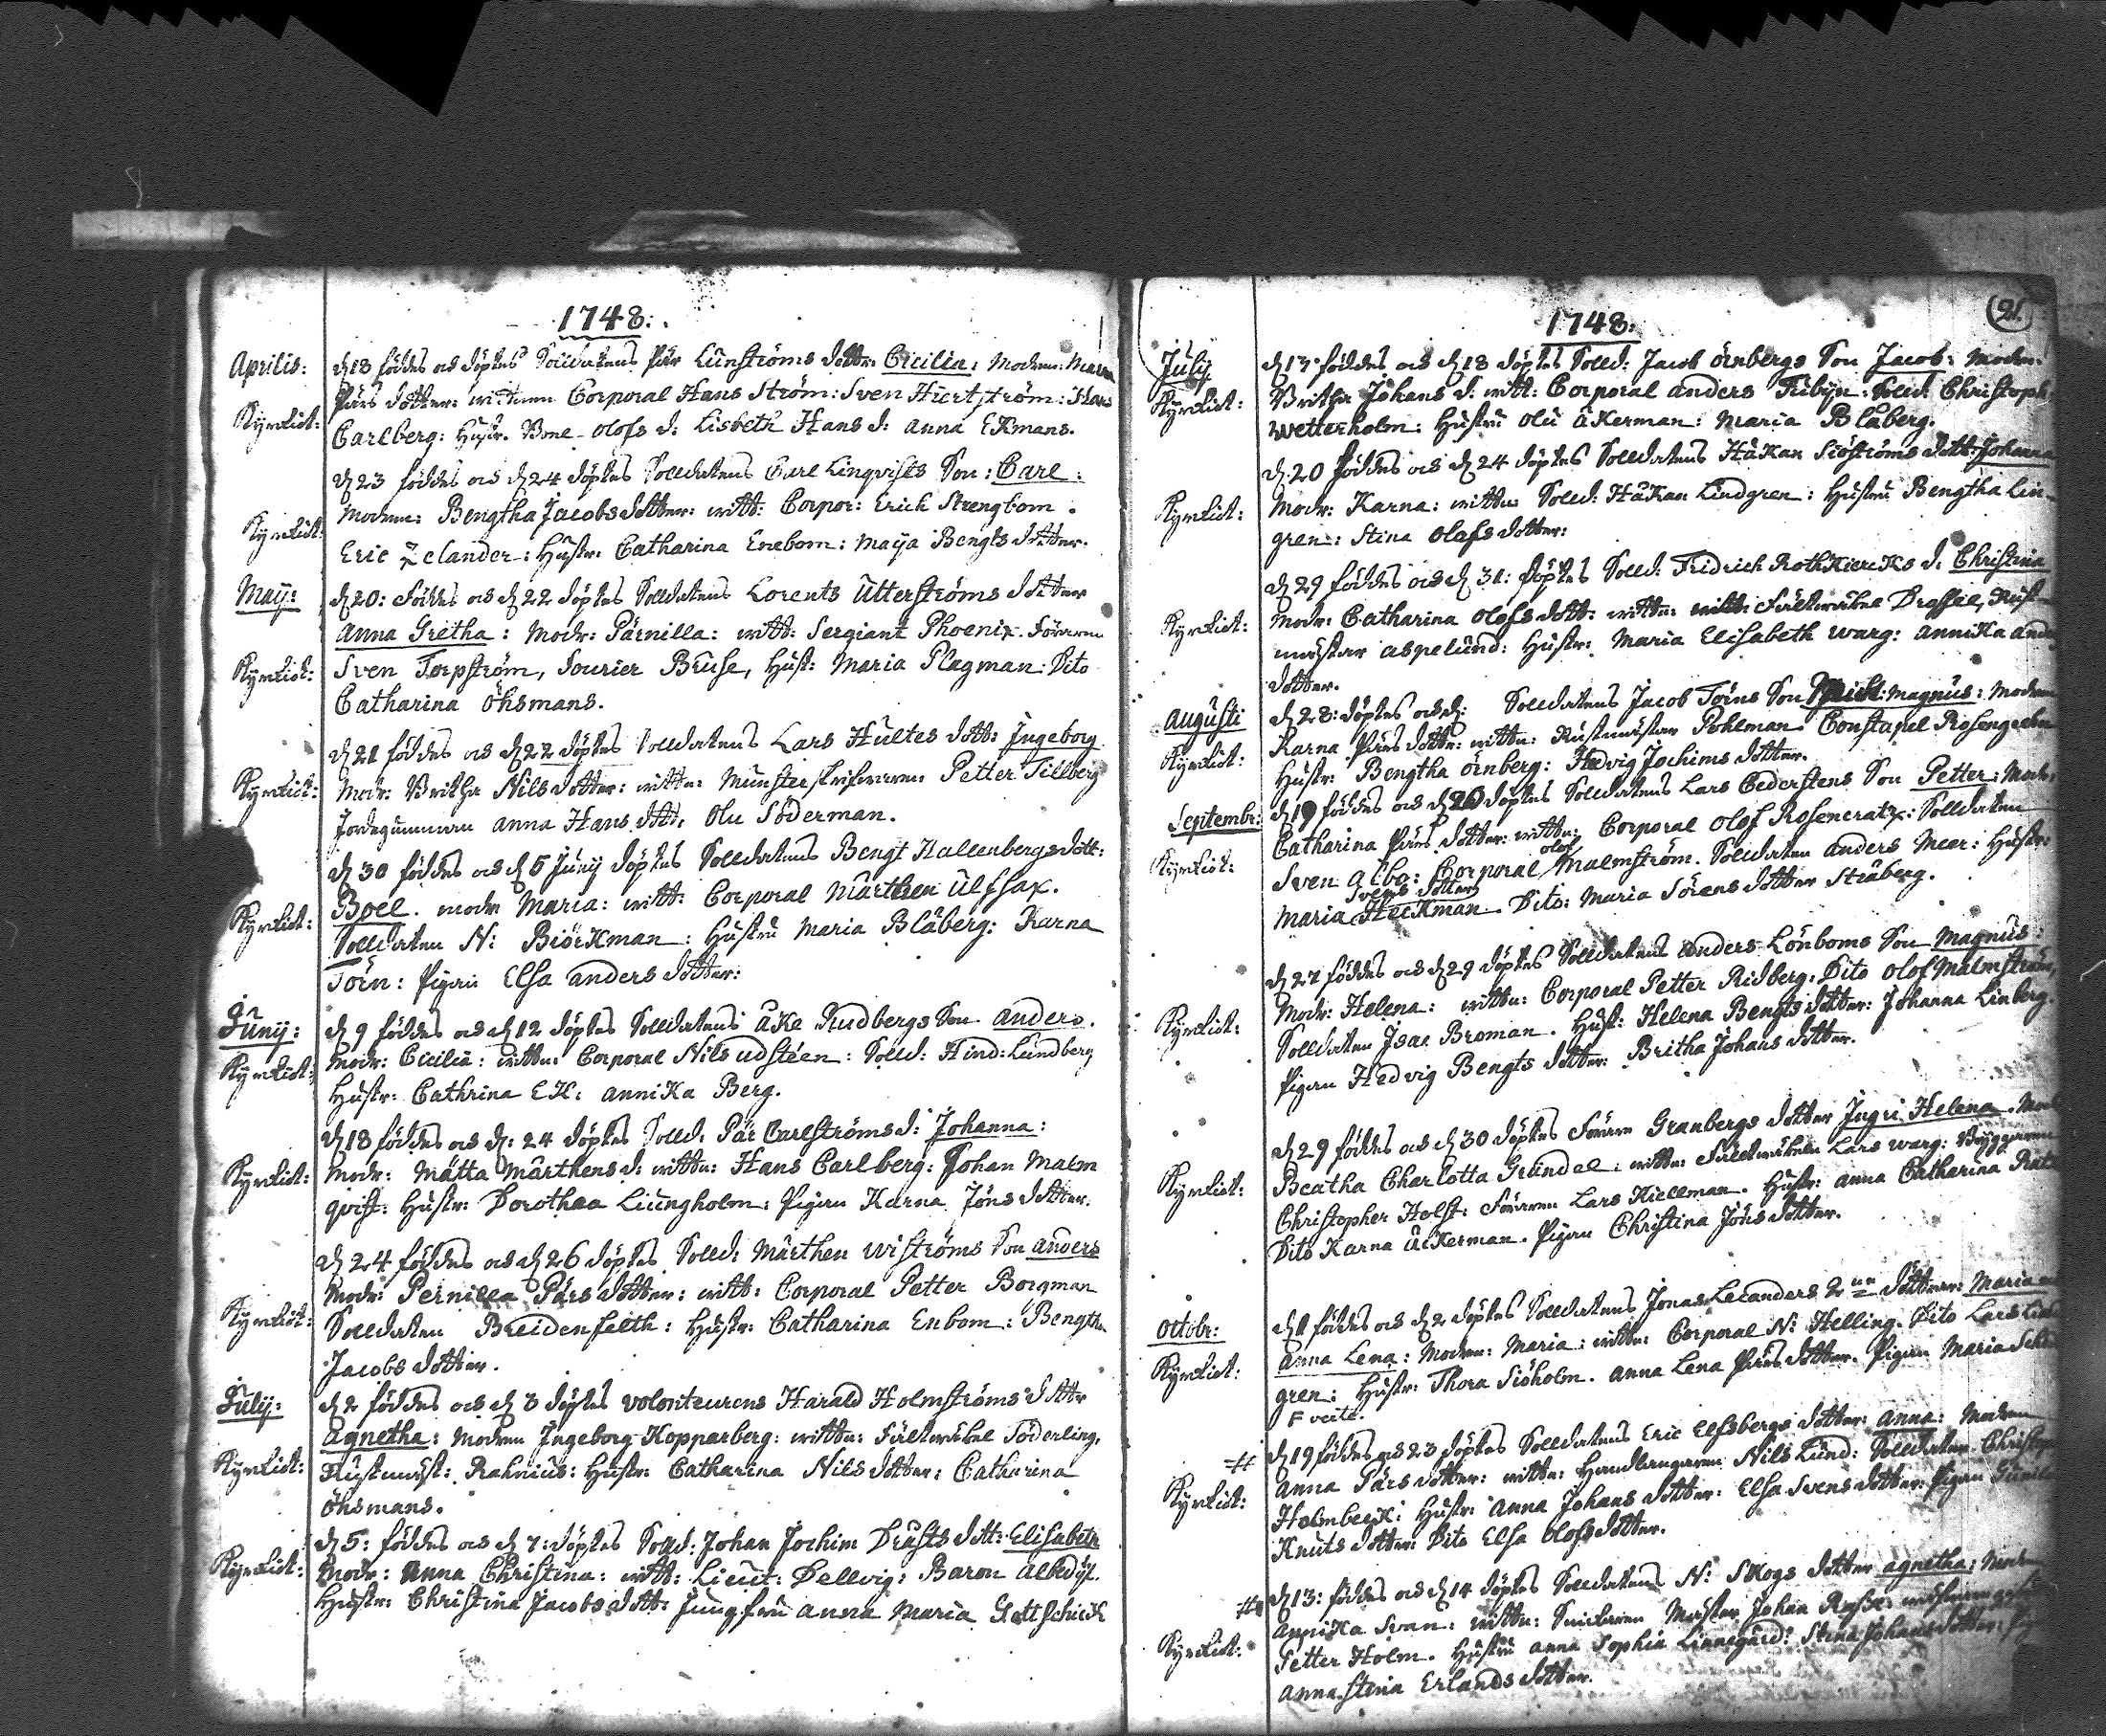 1748:
Aprilis:
d 18 föddes och döptes Solldatens Pär Lünströms dottr: Cicilia: Modren: Marna
Pärs dotter: wittnen Corporal Hans Ström: Sven Hiertström: Hans
Kyrckiot:
Carlberg: Hustr. Bone Olofs d: Lisbeth Hans d: Anna Ekmans.
d 23 föddes och d 24 döptes Solldatens Carl Linqvists Son: Carl:
Modren: Bengtha Jacobs dotter: witt: Corpor: Erich Strengbom.
Eric Zelander: Hustr: Catharina Enebom: Maija Bengts dotter.
Maij:
d 20: föddes och d 22 döptes Solldatens Lorents Utterströms dotter
Anna Gretha: Modr: Pärnilla: witt: Sergiant Phoenix. Föraren
Sven Torpström, Fourier Bruse, Hust: Maria Plagman: Dito
Catharina Öhsmans.
d 21 föddes och d 22 döptes Solldatens Lars Hultes dott: Ingeborg
Modr: Britha Nils dotter: wittn: Münsterskrifvaren Petter Tillberg
Jordegumman Anna Hans dott: Olu Söderman.
d 30 föddes och d 5 Junij döptes Solldatens Bengt Hallenbergs dott:
Boel. modr Maria: witt: Corporal Mårthen Ulfsax.
Solldaten N: Biörkman: Hustru Maria Blåberg: Karna
Törn: Pigan Elsa Anders dotter:
Junij:
d 9 föddes och d 12 döptes Solldatens Åke Rudbergs Son Anders.
Modr: Cicilia: wittn: Corporal Nils Udstéen: Solld: Hind: Lundberg
Hustr: Cathrina Ek: Annika Berg.
d 18 föddes och d: 24 döptes Solld: Pär Carlströms d: Johanna:
Modr: Mätta Mårthens d: wittn: Hans Carlberg: Johan Malm
qvist: Hustr: Dorothea Liungholm: Pigan Karna Jöns dotter.
d 24 föddes och d 26 döptes Solld: Mårthen Wiströms Son Anders
Modr: Pernilla Pärs dotter: witt: Corporal Petter Borgman
Solldaten Breidenfelth: Hustr: Catharina Enbom: Bengtha
Jacobs dotter.
Julij:
d 2 föddes och d 3 döptes Volonteurens Harald Holmströms dottr
Agnetha: Modren Ingeborg Kopparberg: wittn: Fältwäbel Söderling.
Rustmäst: Rahnius: Hustr: Catharina Nils dotter: Catharina
Öhsmans.
d 5: föddes och d 7: döptes Solld: Johan Jochim Drusts dott: Elisabeth
Modr: Anna Christina: witt: Lieut: Dellvig: Baron Albedÿl.
Hustr: Christina Jacobs dott: Jungfru Anna Maria Gottschick
1748.
21.
July
d 13 föddes och d 18 döptes Solld: Jacob Örnbergs Son Jacob: Modr:
Kyrckiot:
Britha Johans d: witt: Corporal Anders Tubijn: Solld: Christoph
Wetterholm: Hustru Olu Åkerman: Maria Blåberg.
d 20 föddes och d 24 döptes Solldatens Håkan Siöströms dott: Johanna
Modr: Karna: wittn: Solld: Håkan Lindgren: Hustru Bengtha Lin-
gren: Stina Olofs dotter:
d 29 föddes och d 31: döptes Solld: Fridrich Rothkiercks d. Christina
Modr: Catharina Olofs dott: wittn: Fältwäbel Drossel, Rust-
mästar Aspelund: Hustr: Maria Elisabeth Warg: Annika Anders
dotter.
Augusti
d 28: döptes och d: Solldatens Jacob Törns Son Magnus: Modren
Karna Pärs dottr: wittn: Rustmästar Pohlman Constapel Rosengren
Hustr: Bengtha Örnberg: Hedvig Jochims dotter.
Septembr:
d 19 föddes och d 20 döptes Solldatens Lars Cederstens Son Petter: Modr:
Catharina Pärs dotter: wittn: Corporal Olof Rosencratz: Solldaten
Sven Albo: Corporal Olof Malmström. Solldaten Anders Meer: Hustr:
Maria Svens dotter Heckman. Dito: Maria Sörens dotter Stråberg.
d 27 föddes och d 29 döptes Solldatens Anders Lönboms Son Magnus:
Modr: Helena: wittn: Corporal Petter Ridberg: Dito Olof Malmström,
Solldaten Isac Broman. Hust: Helena Bengts dotter: Johanna Linberg.
Pigan Hedvig Bengts dotter: Britha Johans dotter.
d 29 föddes och d 30 döptes Föraren Granbergs dotter Ingri Helena. Modr
Beatha Charlotta Gründel: wittn: Fältwäbeln Lars Warg: Bryggaren
Christopher Holst: Föraren Lars Kiellman. Hustr: Anna Catharina
Dito Karna Åckerman. Pigan Christina Jöns dotter.
Octobr:
d 1 föddes och d 2 döptes Solldatens Jonas Leeanders 2ne döttrar: Maria
Anna Lena: Modren: Maria: wittn: Corporal N: Helling. Dito Lars
gren: Hustr: Thora Siöholm. Anna Lena Pärs dotter. Pigan Maria
F verte.
# d 19 föddes och 23 döptes Solldatens Eric Elfsbergs dotter: Anna: Modren
Anna Pärs dotter: wittn: Handlangaren Nils Lund: Solldaten Christop
Holmbeck: Hustr: Anna Johans dotter: Elsa Svens dotter: Pigan
Knuts dotter: Dito Elsa Olofs dotter.
# d 13: föddes och d 14 döptes Solldatens N: Skogs dotter Agnetha: Modren
Annika Svan: wittn: Snickaren Mäster Johan
Petter Holm. Hustru Anna Sophia Linnegård: Stina Johans dotter:
Anna Stina Erlands dotter.